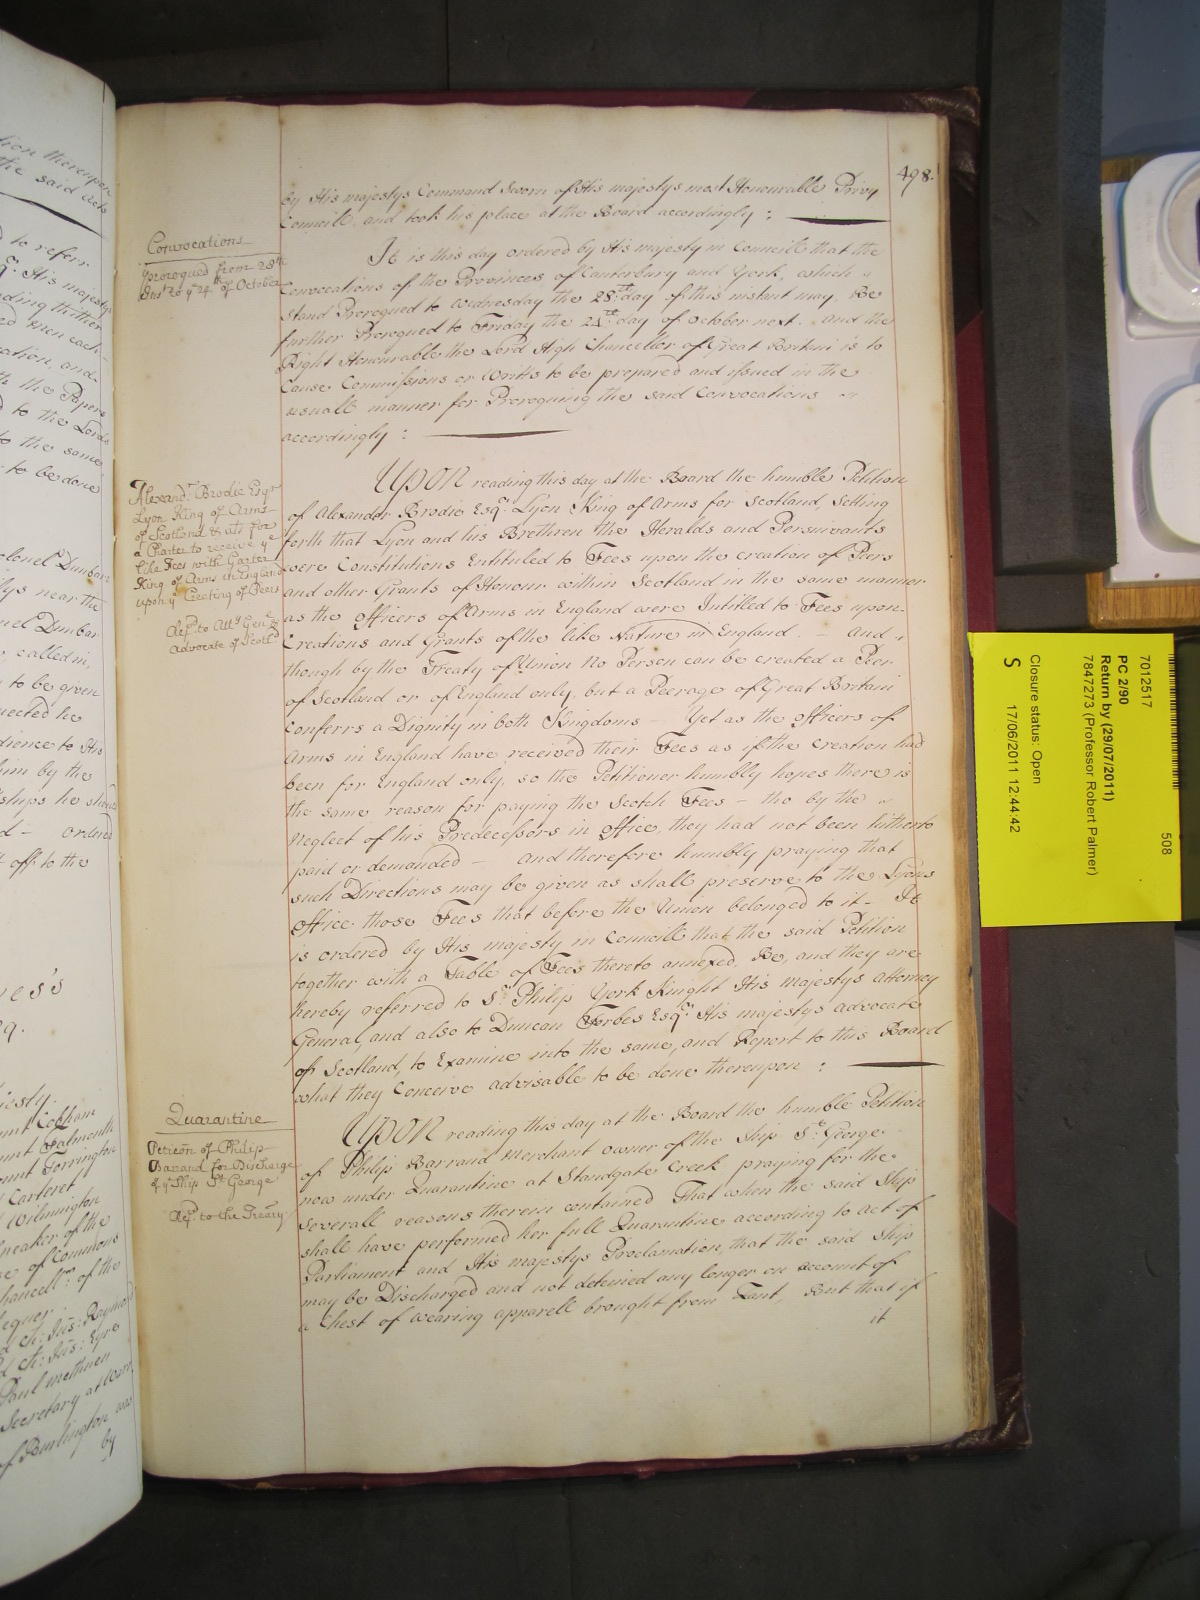 498.
by His majestys Command Sworn of His majestys most Honourable Privy
Councill, and took his place at the Board accordingly :
Convocations
prorogued from 28th
Inst. to ye 24th of October
It is this day ordered by His majesty in Councill that the
Convocations of the Provinces of Canterbury and York, which
stand Prorogued to Wednesday the 28th day of this instant may, Be
further Prorogued to Friday the day of October next. and the
Right Honourable the Lord High Chancellor of Great Britain is to
Cause Commissions or Writts to be prepared and issued in the
usuall manner for Proroguing the said Convocations
accordingly :
Alexandr. Brodie Esqr
Lyon King of Arms
of Scotland &
a Charter to receive ye
like Fees with Garter
King of Arms in England
upon ye Creating of Peers
Refd. to Atty Genll &
Advocate of Scotld
Upon reading this day at the Board the humble Petition
of Alexander Brodie Esqr. Lyon King of Arms for Scotland, Setting
forth that Lyon and his Brethren the Heralds and Persuivants
were Constitutions Entituled to Fees upon the creation of Peers
and other Grants of Honour within Scotland in the same manner
as the officers of Arms in England were Intitled to Fees upon
Creations and Grants of the like Nature in England. - And
though by the Treaty of Union no Person can be created a Peer
of Scotland or of England only, but a Peerage of Great Britain
Conferrs a Dignity in both Kingdoms - Yet as the officers of
Arms in England have received their Fees as if the Creation had
been for England only, so the Petitioner humbly hopes there is
the same reason for paying the Scotch Fees - tho by the
Neglect of his Predecessors in office, they had not been hitherto
paid or demanded - and therefore humbly praying that
such Directions may be given as shall preserve to the Lyons
office those Fees that before the Union belonged to it - It
is ordered by His majesty in Councill that the said Petition
together with a Table of Fees thereto annexed, Be, and they are
hereby referred to Sr. Philip York Knight His majestys Attorney
General, and also to Duncan Forbes Esqr. His majestys advocate
of Scotland, to Examine into the same, and Report to this Board
what they Conceive advisable to be done thereupon :
Quarantine
Peticon of Philip
Barrand for Discharge
of ye Ship St. George
Refd. to the Treāry
Upon reading this day at the Board the humble Petition
of Philip Barrand Merchant owner of the Ship St. George
now under Quarantine at Standgate Creek praying for the
severall reasons therein contained That when the said Ship
shall have performed her full Quarantine according to act of
Parliament and His majestys Proclamation, that the said Ship
may be Discharged and not detained any longer on account of
a Chest of wearing apparell brought from Zant, But that if
it
tion thereupon
the said acts
d to referr
His majestys
ding thither
cation, and
th the Papers
d to the Lords
to the same
to be done
olonel Dunbar
tys near the
nel Dunbar
called in,
to be given
nected he
dience to His
him by the
ships he should
d - ordered
t off to the
iesty.
unt Cobham
unt Falmouth
unt Torrington
Carteret
Wilmington
peaker of the
se of Commons
hancellr. of the
equer
d Ch: Jus: Raymond
d Ch: Jus: Eyre
Paul Methuen
Secretary at Warr
of Burlington was
by
7012517
508
PC 2/90
Return by (29/07/2011)
7847273 (Professor Robert Palmer)
Closure status: Open
S 17/06/2011 12:44:42